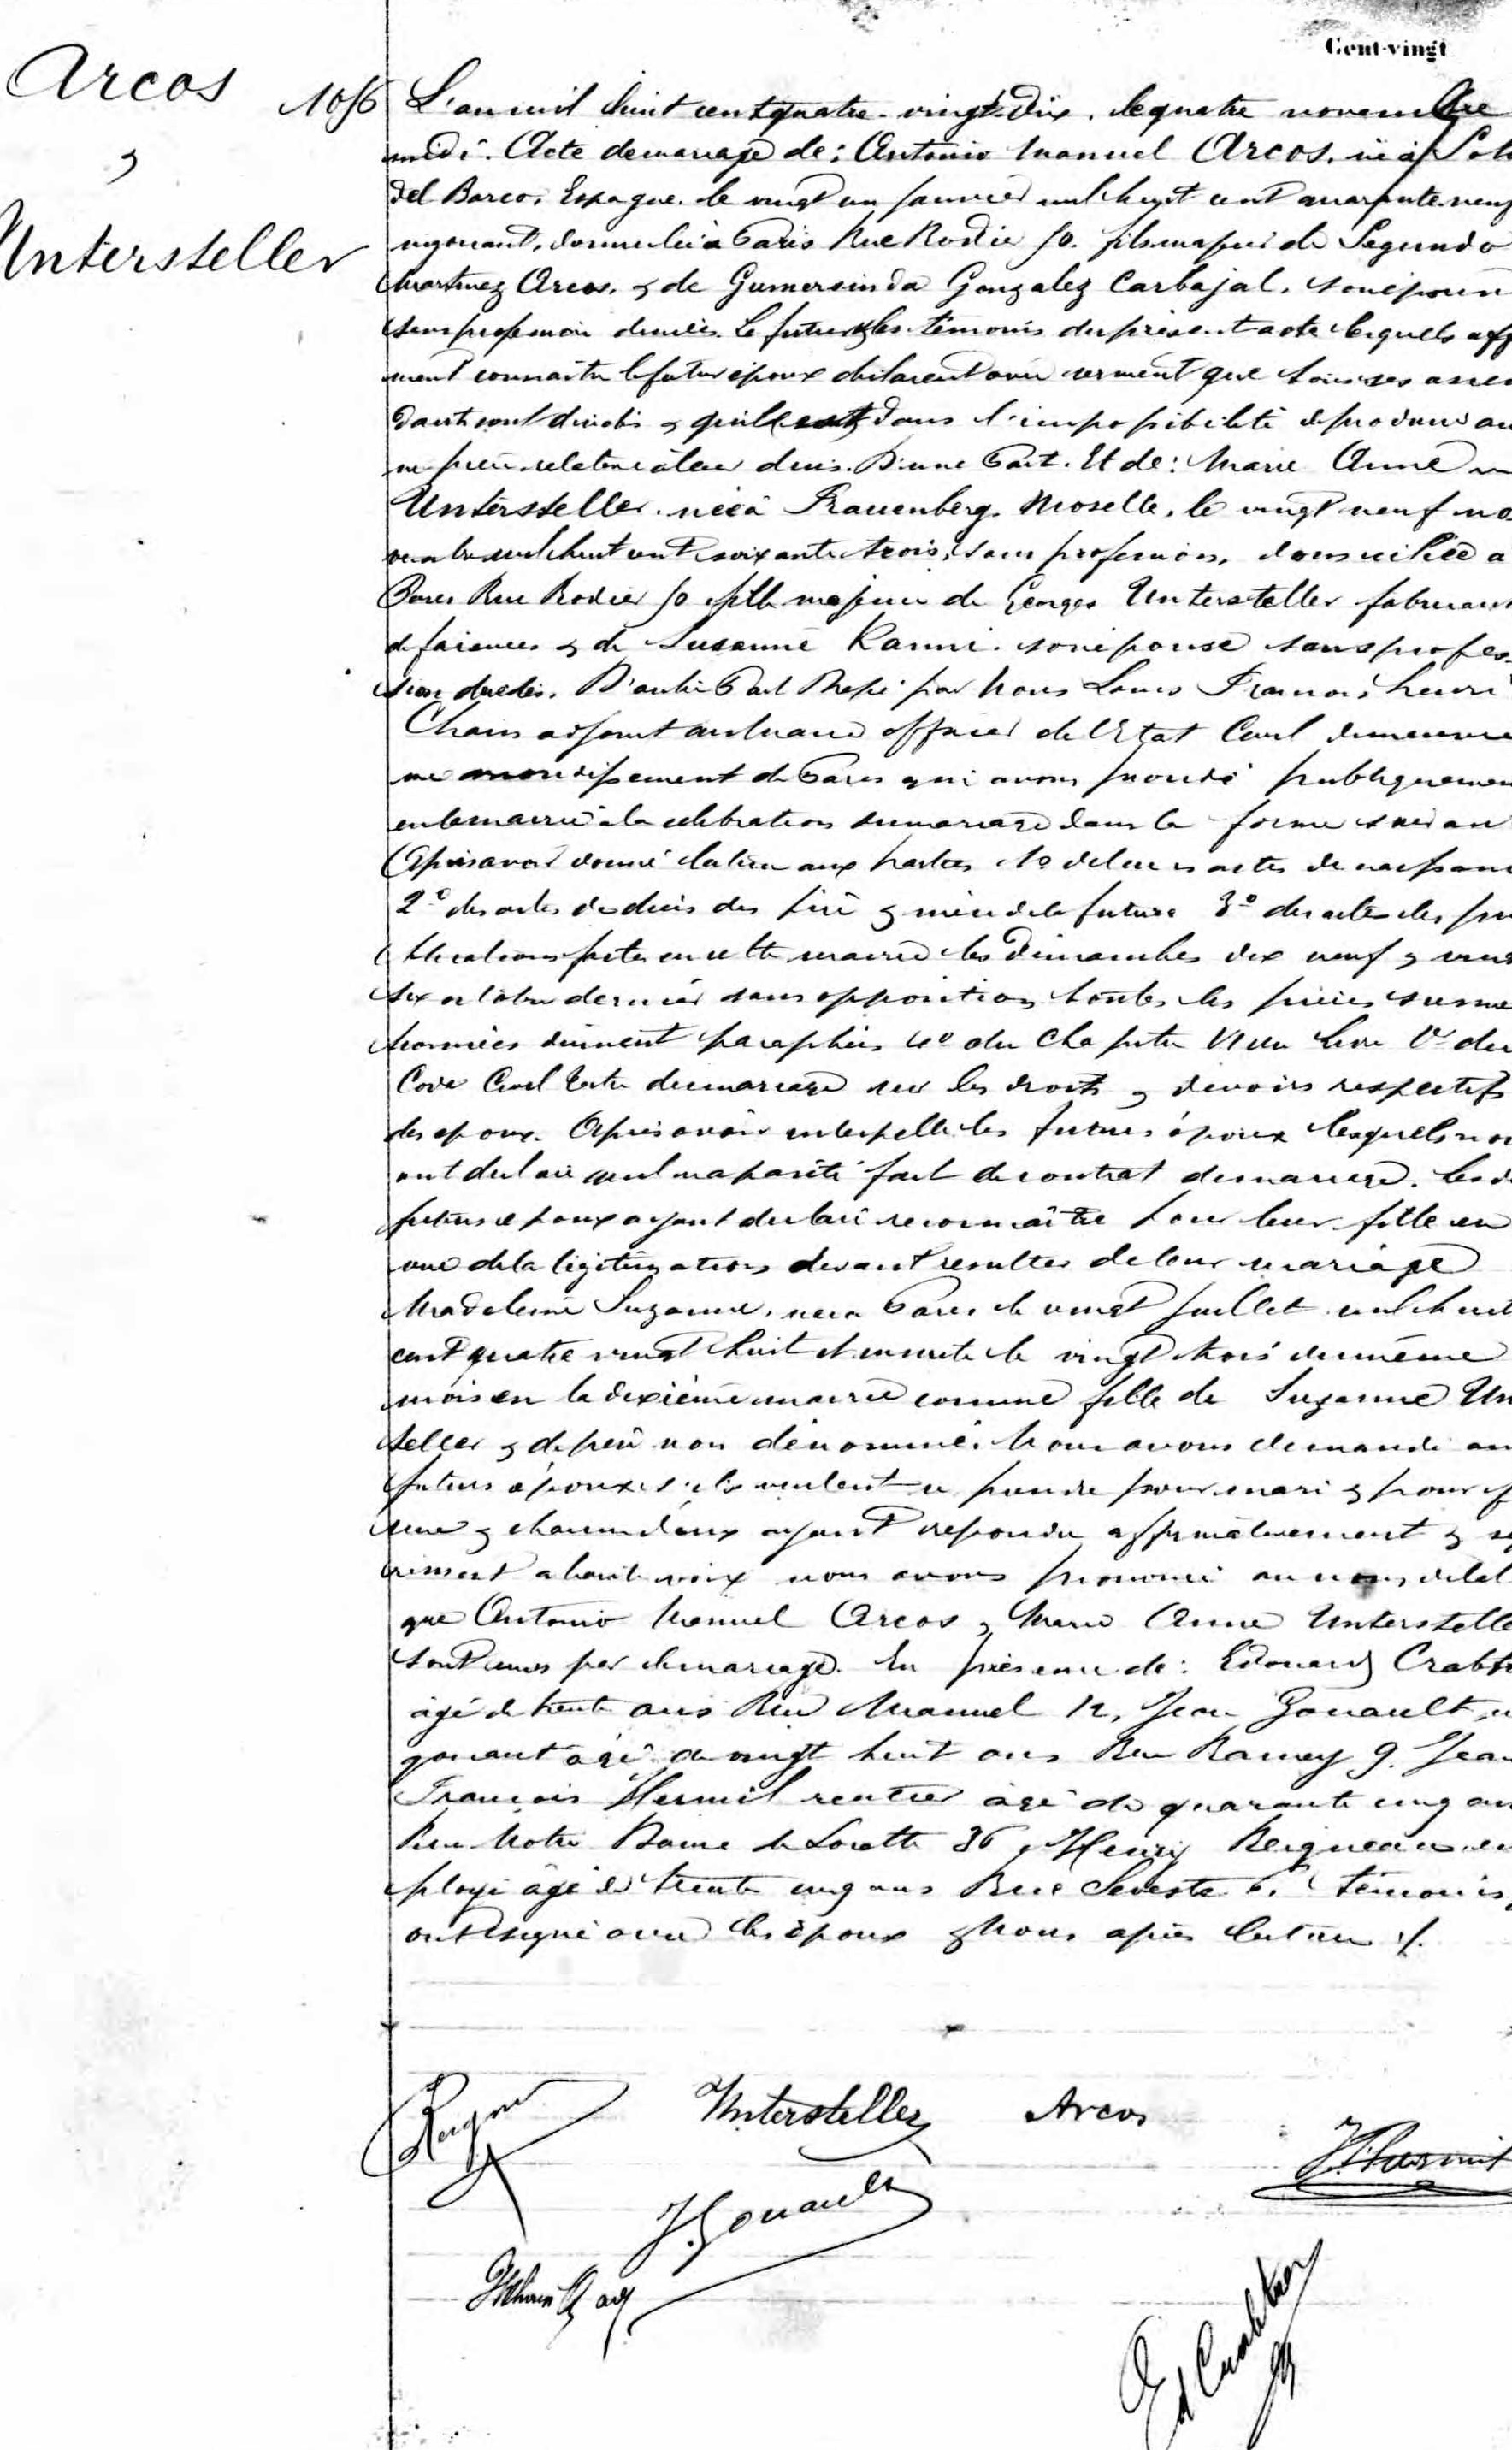 Cent-vingt
Arcos
&
Untersteller
1056
L'an mil huit cent quatre-vingt-dix, le quatre novembre
midi. Acte de mariage de: Antonio Manuel Arcos, né à Soto
del Barco, Espagne, le vingt un janvier mil huit cent quarante neuf
négociant, domicilié à Paris Rue Rodier 50. fils majeur de Segundo
Martinez Arcos, & de Gumersinda Gonzalez Carbajal, son épouse
sans profession décédés. Le futur & les témoins du présent acte lesquels aff
ment connaître le futur époux déclarent avec serment que tous ses ascen
dants sont décédés & qu'il est dans l'impossibilité de produire au
ne pièce relative à leur décès. D'une Part. Et de: Marie Anne
Untersteller, née à Frauenberg, Moselle, le vingt neuf no
vembre mil huit cent soixante trois, sans profession, domiciliée à
Paris Rue Rodier 50 fille majeure de Georges Untersteller fabricant
de faïences & de Susanne Kanni, son épouse sans profes-
sion décédés. D'autre Part. Dressé par Nous Louis François Henri
Chain adjoint au Maire officier de l'Etat Civil du neuviè
me arrondissement de Paris qui avons procédé publiquemen
en la mairie à la célébration du mariage dans la forme suivan
Après avoir donné lecture aux parties 1º de leurs actes de naissanc
2º des actes de décès des père & mère de la future 3º des actes des pu
blications faites en cette mairie les Dimanches dix neuf & vingt
six octobre dernier sans opposition, toutes les pièces susmen
tionnées dûment paraphées 4º du Chapitre VI du Livre Ier du
Code Civil titre du mariage sur les droits & devoirs respectifs
des époux. Après avoir interpellé les futurs époux lesquels nous
ont déclaré qu'il n'a pas été fait de contrat de mariage. Les d
futurs époux ayant déclaré reconnaître pour leur fille en
vue de la légitimation devant résulter de leur mariage
Madeleine Suzanne, née à Paris le vingt juillet mil huit
cent quatre vingt huit et inscrite le vingt trois du même
mois en la dixième mairie comme fille de Suzanne Un
teller & de père non dénommé. Nous avons demandé au
futurs époux s'ils veulent se prendre pour mari & pour f
me & chacun d'eux ayant répondu affirmativement & sé
rément à haute voix nous avons prononcé au nom de la l
que Antonio Manuel Arcos & Marie Anne Unterstelle
sont unis par le mariage. En présence de: Edouard Crabt
âgé de trente ans Rue Manuel 12, Jean Gouault, n
gociant âgé de vingt huit ans Rue Ramey 9. Jean
François Hermil rentier âgé de quarante cinq ans
Rue Notre Dame de Lorette 36 & Henry Reigneau em
ployé âgé de trente cinq ans Rue Seveste 6. témoins,
ont signé avec les époux & Nous après lecture ./.
Untersteller Arcos
J. Gouault